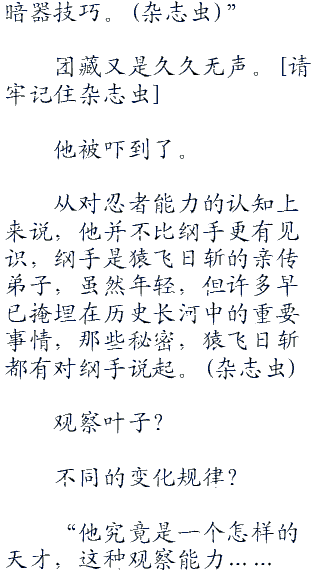 暗器技巧。(杂志虫)”
团藏又是久久无声。[请
牢记住杂志虫]
他被吓到了。
从对忍者能力的认知上
来说，他并不比纲手更有见
识，纲手是猿飞日斩的亲传
弟子，虽然年轻，但许多早
已掩埋在历史长河中的重要
事情，那些秘密，猿飞日斩
都有对纲手说起。(杂志虫)
观察叶子？
不同的变化规律？
“他究竟是一个怎样的
天才，这种观察能力……